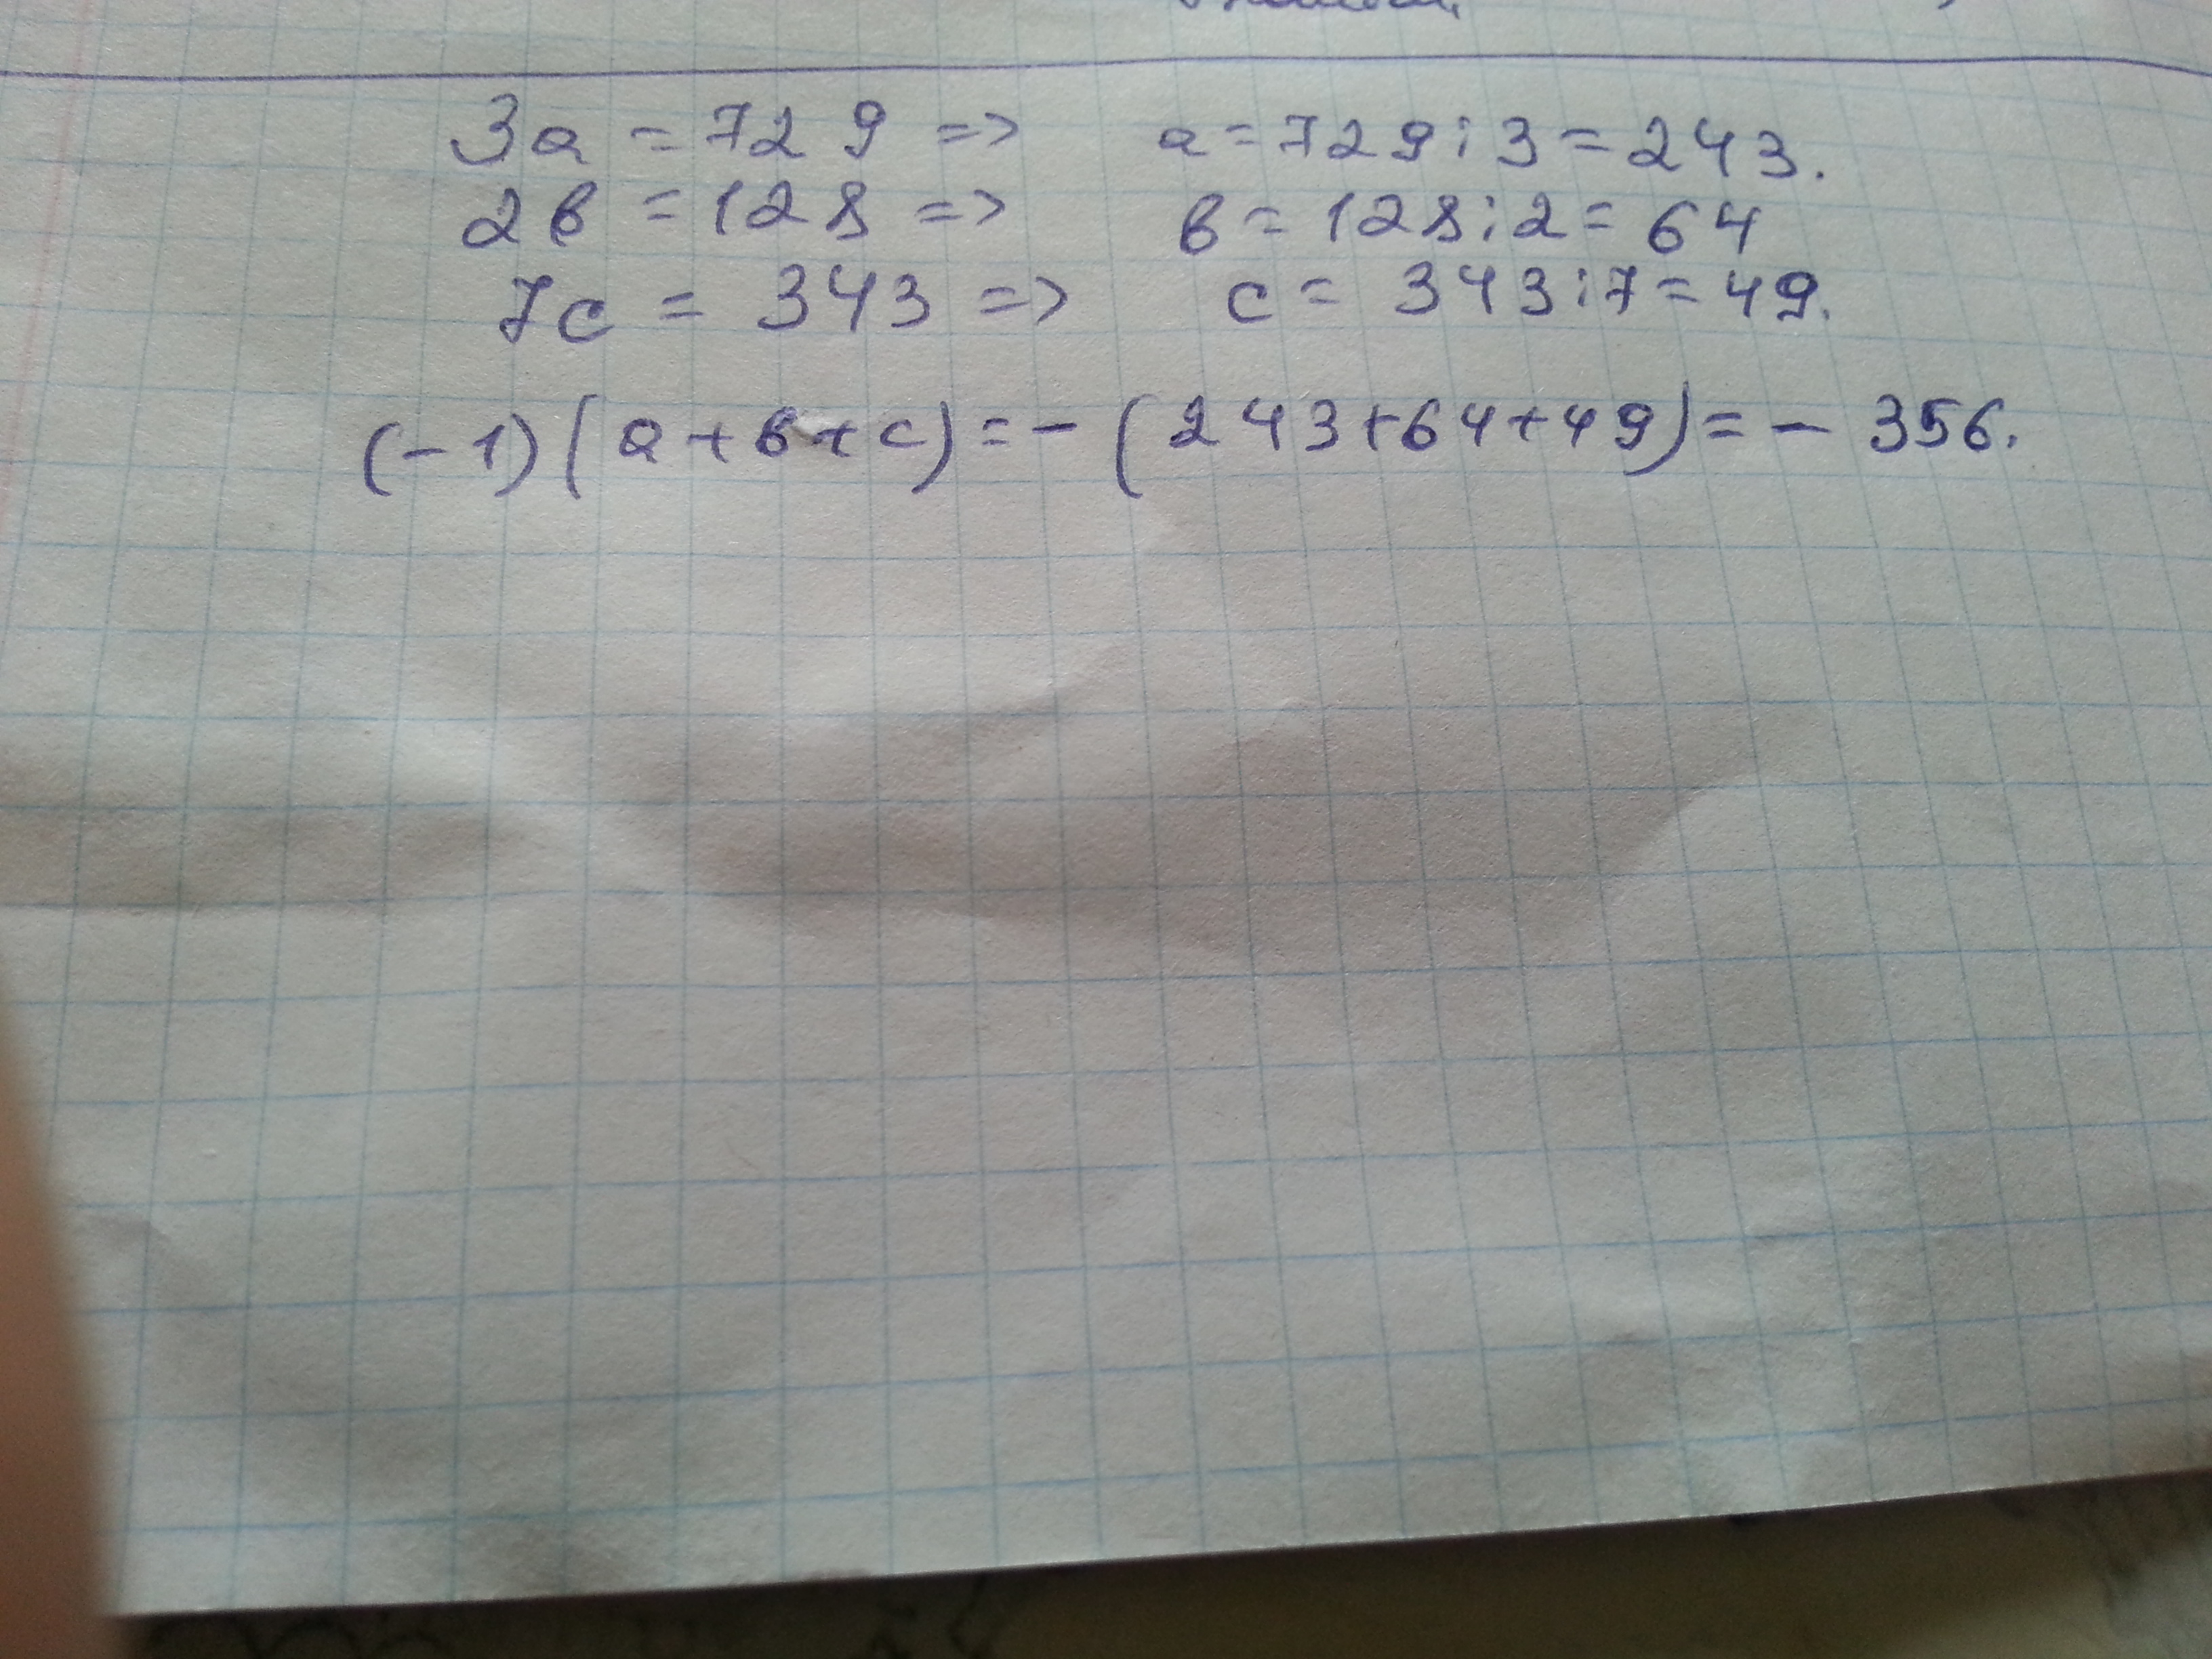 3a = 729 => a = 729 : 3 = 243.
2в = 128 => в = 128 : 2 = 64
7c = 343 => c = 343 : 7 = 49.
(-1)(a+в+c) = - (243+64+49) = - 356.